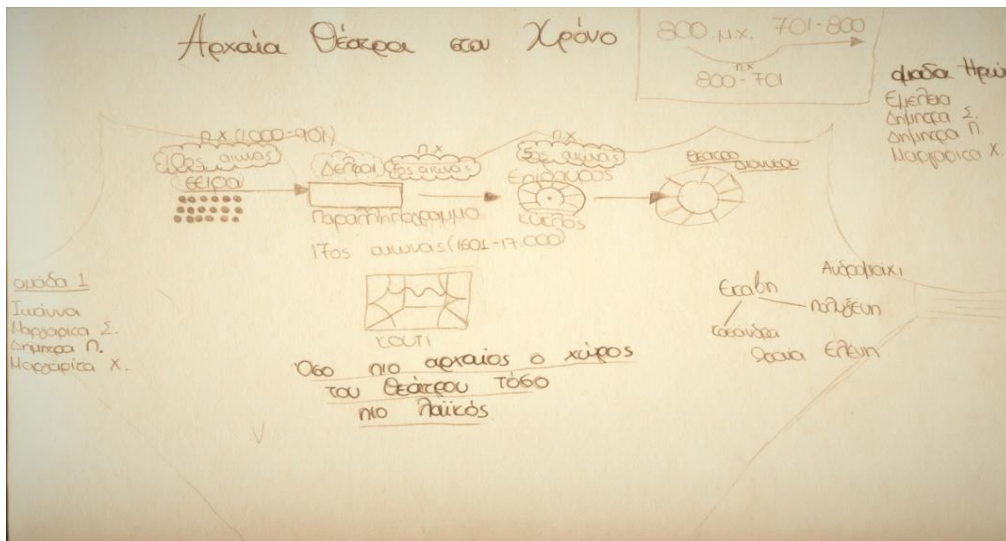 Αρχαία Θέατρα στον Χρόνο
800 μ.χ. 701-800
π.χ
800-701
ομάδα
Εμέλεια
Δήμητρα Σ.
Δήμητρα Π.
Μαργαρίτα Χ.
π.χ.(1000-901)
αιώνας
σειρά
Δελφοί
π.χ
αιώνας
Παραλληλόγραμμο
π.χ.
5ος αιώνας
Επίδαυρος
κύκλος
Θέατρο
Διονύσου
17ος αιώνας(1601-17.000)
κουτί
Όσο πιο αρχαίος ο χώρος
του Θεάτρου τόσο
πιο λαϊκός
ομάδα 1
Ιωάννα
Μαργαρίτα Σ.
Δήμητρα Π.
Μαργαρίτα Χ.
Ανδρομάχι
Εκάβη
Πολυξένη
Κασσάνδρα
Ωραία Ελένη